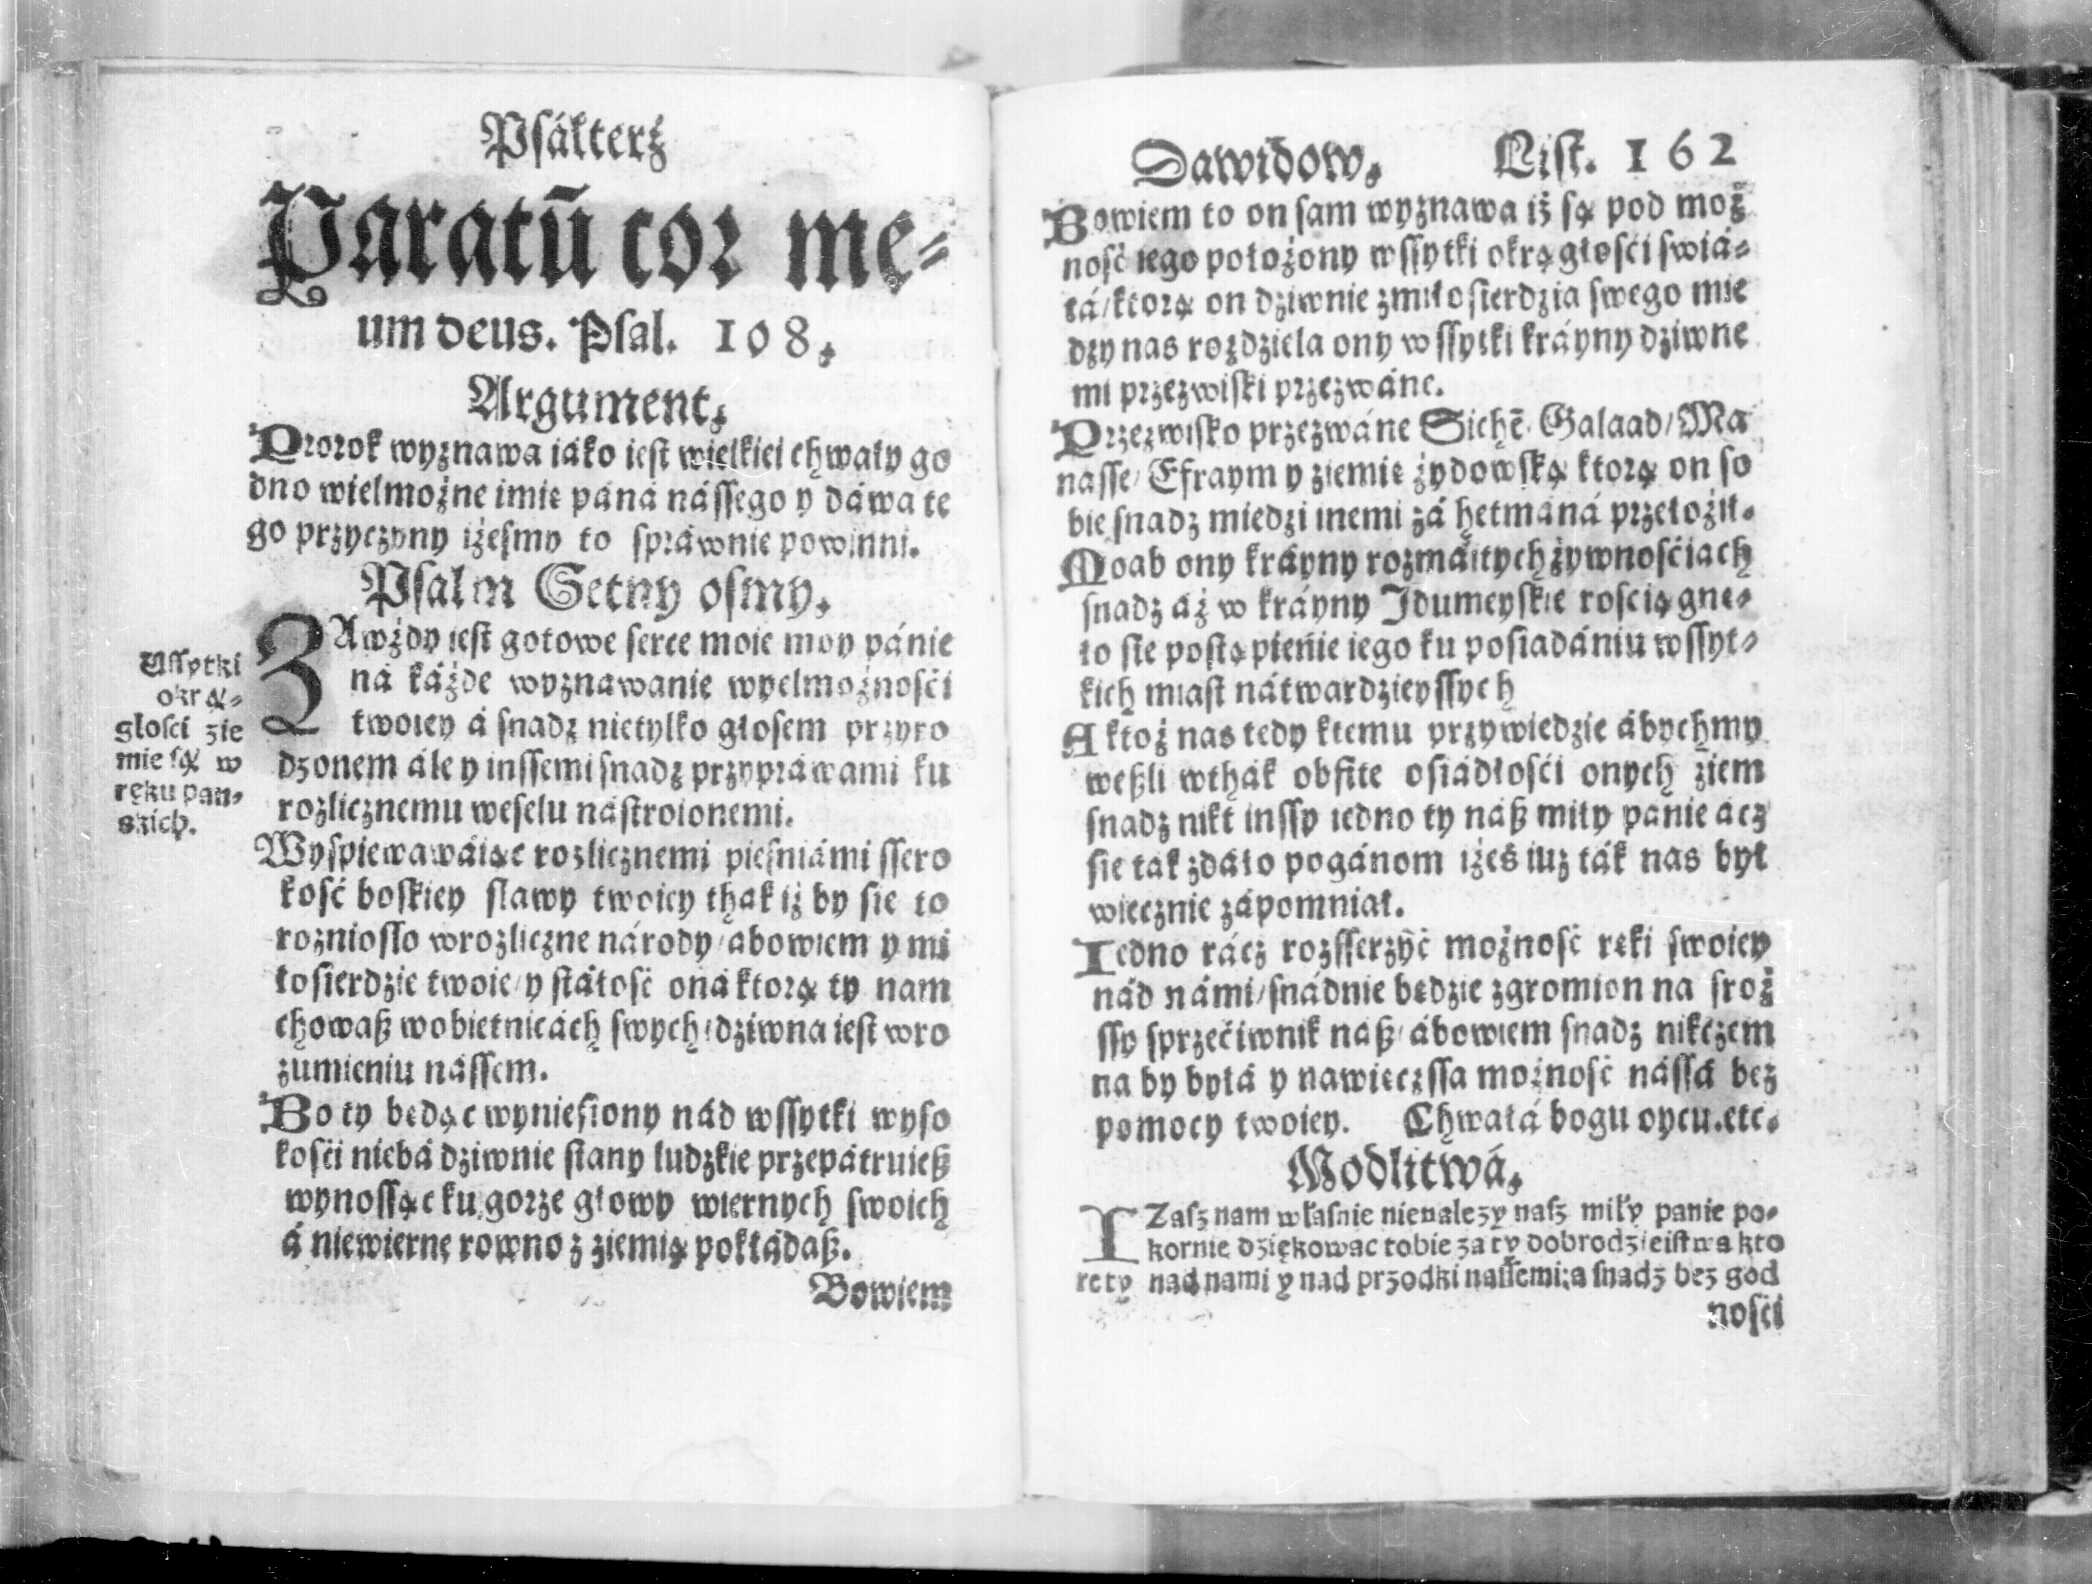 Psałterz
Paratū cor me-
um deus. Psal. 108.
Argument.
Prorok wyznawa iáko iest wielkiei chwały go
dno wielmożne imie páná nássego y dáwa te
go przyczyny iżesmy to spráwnie powinni.
Psalm Setny osmy.
ZAwżdy iest gotowe serce moie moy pánie
ná káżde wyznawanie wyelmożnosći
twoiey á snadz nietylko głosem przyro
dzonem ále y inssemi snadz przypráwami ku
rozlicznemu weselu nástroionemi.
Wyspiewawáiąc rozlicznemi piesniámi ssero
kosć boskiey slawy twoiey thak iż by sie to
rozniosło wrozliczne národy/ábowiem y mi
łosierdzie twoie/y stáłosć oná ktorą ty nam
chowaß wobietnicách swych/dziwna iest wro
zumieniu nássem.
Bo ty będąc wyniesiony nád wssytki wyso
kosći niebá dziwnie stany ludzkie przepátruieß
wynossąc ku gorze głowy wiernych swoich
á niewierne rowno z ziemią pokłádaß.
Bowiem
Wssytki
okrą-
głosci zie
mie są w
ręku pan-
skich.
Dawidow. List. 162
Bowiem to on sam wyznawa iż są pod moż
nosć iego położony wssytki okrągłosći swiá-
tá/ktorą on dziwnie zmiłosierdzia swego mie
dzy nas rozdziela ony wssytki kráyny dziwne
mi przezwiski przezwáne.
Przezwisko przezwáne Sichē/Galaad/Ma
nasse/Efraym y ziemie żydowską ktorą on so
bie snadz miedzi inemi zá hetmáná przełożił.
Moab ony kráyny rozmáitych żywnosćiach
snadz áż w kráyny Jdumeyskie rosciągne-
ło sie postąpienie iego ku posiadániu wssyt-
kich miast nátwardzieyssych
A ktoż nas tedy ktemu przywiedzie ábychmy
weßli wthák obfite osiádłosći onych ziem
snadz nikt inssy iedno ty náß miły panie ácz
sie tak zdáło pogánom iżeś iuż ták nas był
wiecznie zápomniał.
Iedno rácz rozsserzyć możnosć ręki swoiey
nád námi/snádnie będzie zgromion na sroż
ssy sprzećiwnik náß/ábowiem snadz nikczem
na by byłá y nawieczssa możnosć nássá bez
pomocy twoiey. Chwałá bogu oycu.etc.
Modlitwá.
IZasz nam własnie nienalezy nasz miły panie po-
kornie dziękowac tobie za ty dobrodzieistwa kto
rety nad nami y nad przodki nassemi: a snadz bez god
nosći